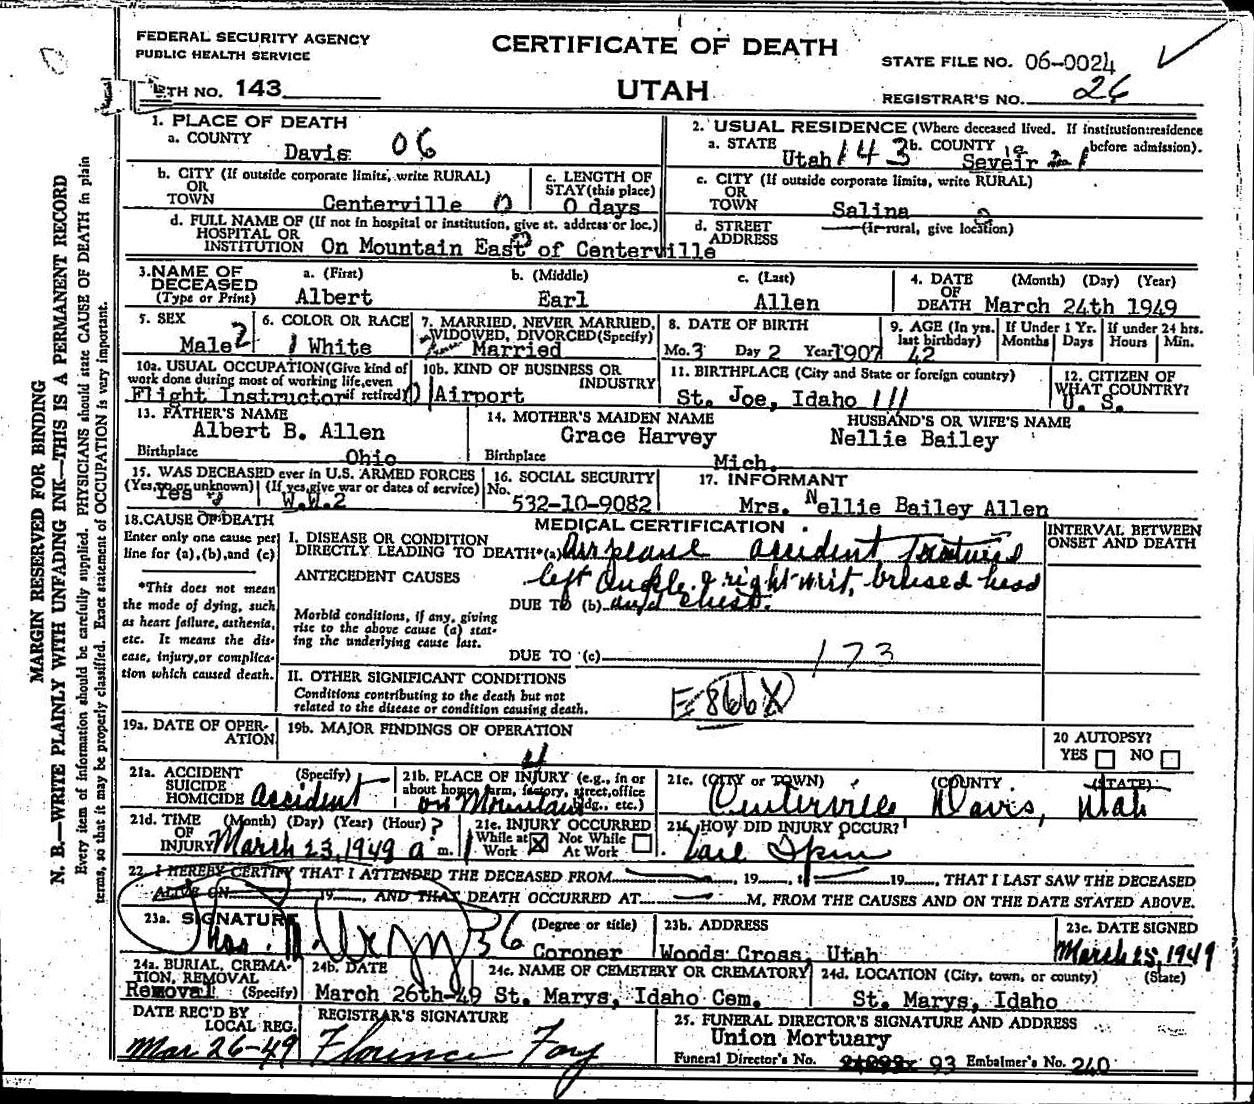 FEDERAL SECURITY AGENCY
PUBLIC HEALTH SERVICE
CERTIFICATE OF DEATH
UTAH
STATE FILE NO. 06-0024
TH NO. 143
REGISTRAR'S NO. 26
1. PLACE OF DEATH
a. COUNTY
Davis 06
2. USUAL RESIDENCE (Where deceased lived. If institution: residence before admission).
a. STATE Utah 143 b. COUNTY Seveir
b. CITY (If outside corporate limits, write RURAL)
OR
TOWN Centerville 0
c. LENGTH OF
STAY (this place)
0 days
c. CITY (If outside corporate limits, write RURAL)
OR
TOWN Salina 2
d. FULL NAME OF (If not in hospital or institution, give st. address or loc.)
HOSPITAL OR
INSTITUTION On Mountain East of Centerville
d. STREET (If rural, give location)
ADDRESS
3. NAME OF
DECEASED
(Type or Print)
a. (First) b. (Middle) c. (Last)
Albert Earl Allen
4. DATE (Month) (Day) (Year)
OF
DEATH March 24th 1949
5. SEX
Male 2
6. COLOR OR RACE
1 White
7. MARRIED, NEVER MARRIED,
WIDOWED, DIVORCED (Specify)
Married
8. DATE OF BIRTH
Mo. 3 Day 2 Year 1907
9. AGE (In yrs.
last birthday)
42
If Under 1 Yr.
Months Days
If under 24 hrs.
Hours Min.
10a. USUAL OCCUPATION (Give kind of
work done during most of working life, even
if retired)
Flight Instructor
10b. KIND OF BUSINESS OR
INDUSTRY
Airport
11. BIRTHPLACE (City and State or foreign country)
St. Joe, Idaho 111
12. CITIZEN OF
WHAT COUNTRY?
U. S.
13. FATHER'S NAME
Albert B. Allen
Birthplace Ohio
14. MOTHER'S MAIDEN NAME
Grace Harvey
Birthplace Mich.
HUSBAND'S OR WIFE'S NAME
Nellie Bailey
15. WAS DECEASED ever in U.S. ARMED FORCES
(Yes, no or unknown) (If yes, give war or dates of service)
Yes W.W.2
16. SOCIAL SECURITY
No. 532-10-9082
17. INFORMANT
Mrs. Nellie Bailey Allen
18. CAUSE OF DEATH
Enter only one cause per
line for (a), (b), and (c)
*This does not mean
the mode of dying, such
as heart failure, asthenia,
etc. It means the dis-
ease, injury, or complica-
tion which caused death.
MEDICAL CERTIFICATION
INTERVAL BETWEEN
ONSET AND DEATH
I. DISEASE OR CONDITION
DIRECTLY LEADING TO DEATH*(a) Airplane accident fractured
ANTECEDENT CAUSES left Ankle & right wrist, bruised head
DUE TO (b) and chest.
Morbid conditions, if any, giving
rise to the above cause (a) stat-
ing the underlying cause last.
DUE TO (c) 173
II. OTHER SIGNIFICANT CONDITIONS
Conditions contributing to the death but not
related to the disease or condition causing death.
E 866X
19a. DATE OF OPER-
ATION
19b. MAJOR FINDINGS OF OPERATION
20 AUTOPSY?
YES NO
21a. ACCIDENT (Specify)
SUICIDE
HOMICIDE accident
21b. PLACE OF INJURY (e.g., in or
about home, farm, factory, street, office
bldg., etc.)
on Mountain
21c. (CITY or TOWN) (COUNTY) (STATE)
Centerville Davis, Utah
21d. TIME (Month) (Day) (Year) (Hour)
OF
INJURY March 23, 1949 a m.
21e. INJURY OCCURRED
While at Work Not While At Work
21f. HOW DID INJURY OCCUR?
Tail Spin
22. I HEREBY CERTIFY THAT I ATTENDED THE DECEASED FROM 19 , to 19 , THAT I LAST SAW THE DECEASED
ALIVE ON 19 , AND THAT DEATH OCCURRED AT M, FROM THE CAUSES AND ON THE DATE STATED ABOVE.
23a. SIGNATURE (Degree or title)
36 Coroner
23b. ADDRESS
Woods Cross, Utah
23c. DATE SIGNED
March 25, 1949
24a. BURIAL, CREMA-
TION, REMOVAL
Removal (Specify)
24b. DATE
March 26th-49
24c. NAME OF CEMETERY OR CREMATORY
St. Marys, Idaho Cem.
24d. LOCATION (City, town, or county) (State)
St. Marys, Idaho
DATE REC'D BY
LOCAL REG.
Mar 26-49
REGISTRAR'S SIGNATURE
Florence Foy
25. FUNERAL DIRECTOR'S SIGNATURE AND ADDRESS
Union Mortuary
Funeral Director's No. 93 Embalmer's No. 240
MARGIN RESERVED FOR BINDING
N. B.—WRITE PLAINLY WITH UNFADING INK—THIS IS A PERMANENT RECORD
Every item of information should be carefully supplied. PHYSICIANS should state CAUSE OF DEATH in plain
terms, so that it may be properly classified. Exact statement of OCCUPATION is very important.